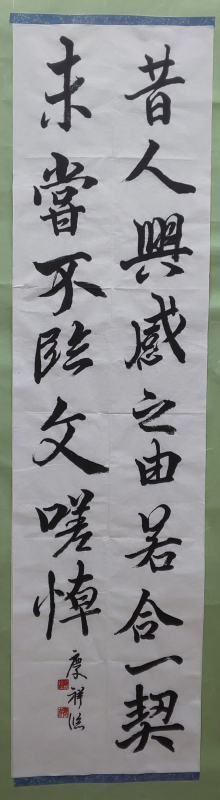 昔人興感之由若合一契
未嘗不臨文嗟悼
康祥臨